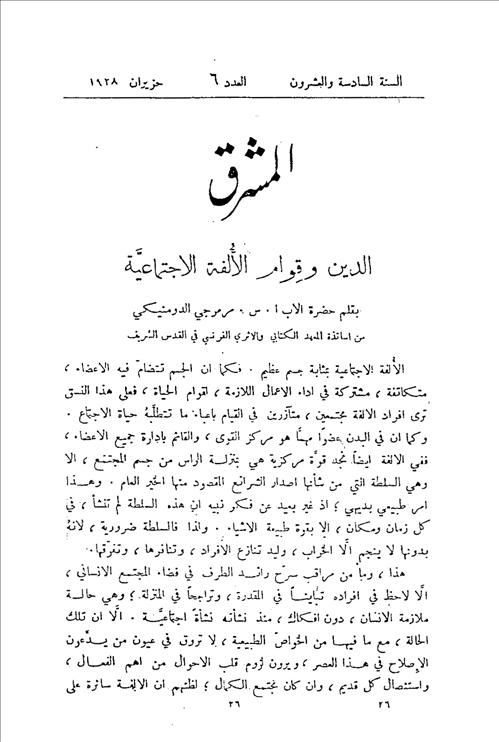 السنة السادسة والعشرون العدد ٦ حزيران ١٩٢٨
المشرق
الدين وقِوام الأُلفة الاجتماعيَّة
بقلم حضرة الاب ا . س . مرمرجي الدومنيكي
من اساتذة المعهد الكتابي والاثري الفرنسي في القدس الشريف
الأُلفة الاجتماعية بمثابة جسم عظيم . فكما ان الجسم تتضامّ فيه الاعضاء ،
متكاتفة ، مشتركة في اداء الاعمال اللازمة ، لقوام الحياة ، فعلى هذا النسق
ترى افراد الالفة مجتمعين ، متآزرين في القيام باعباء ما تتطلَّبهُ حياة الاجتماع .
وكما ان في البدن عضوًا مهمًّا هو مركز القوى ، والقائم بادارة جميع الاعضاء ،
ففي الالفة ايضًا نجد قوَّة مركزية هي بمنزلة الراس من جسم المجتمع ، الا
وهي السلطة التي من شأنها اصدار الشرائع المقصود منها الخير العام . وهذا
امر طبيعي بديهي ؛ اذ غير بعيد عن فكر نبيه ان هذه السلطة لم تنشأ ، في
كل زمان ومكان ، إلا بقوة طبيعة الاشياء . ولذا فالسلطة ضرورية ، لانهُ
بدونها لا ينجم الَّا الخراب ، وليد تنازع الافراد ، وتنافرها ، وتفرّقها.
هذا ، وما من مراقب سرّح رائد الطرف في فضاء المجتمع الانساني ،
الَّا لاحظ في افراده تباينًا في المقدرة ، وتراجحًا في المنزلة ؛ وهي حالة
ملازمة الانسان ، دون افكاك ، منذ نشأته نشأةً اجتماعيَّة . الَّا ان تلك
الحالة ، مع ما فيها من الخواصّ الطبيعية ، لا تروق في عيون من يدَّعون
الإصلاح في هذا العصر ، ويرون لزوم قلب الاحوال من اهم الفعال ،
واستئصال كل قديم ، وان كان مجتمع الكمال ؛ لظنّهم ان الالفة سائرة على
٢٦ ٢٦